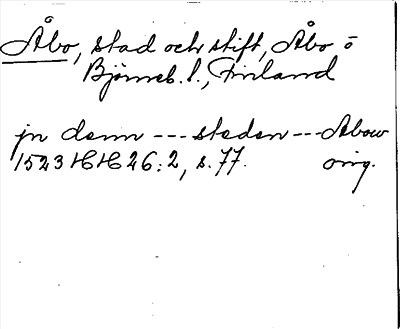 Åbo, stad och stift, Åbo o
Björneb. l., Finland
jn denn --- steden --- Abow
1523 HH 26:2, s. 77. orig.